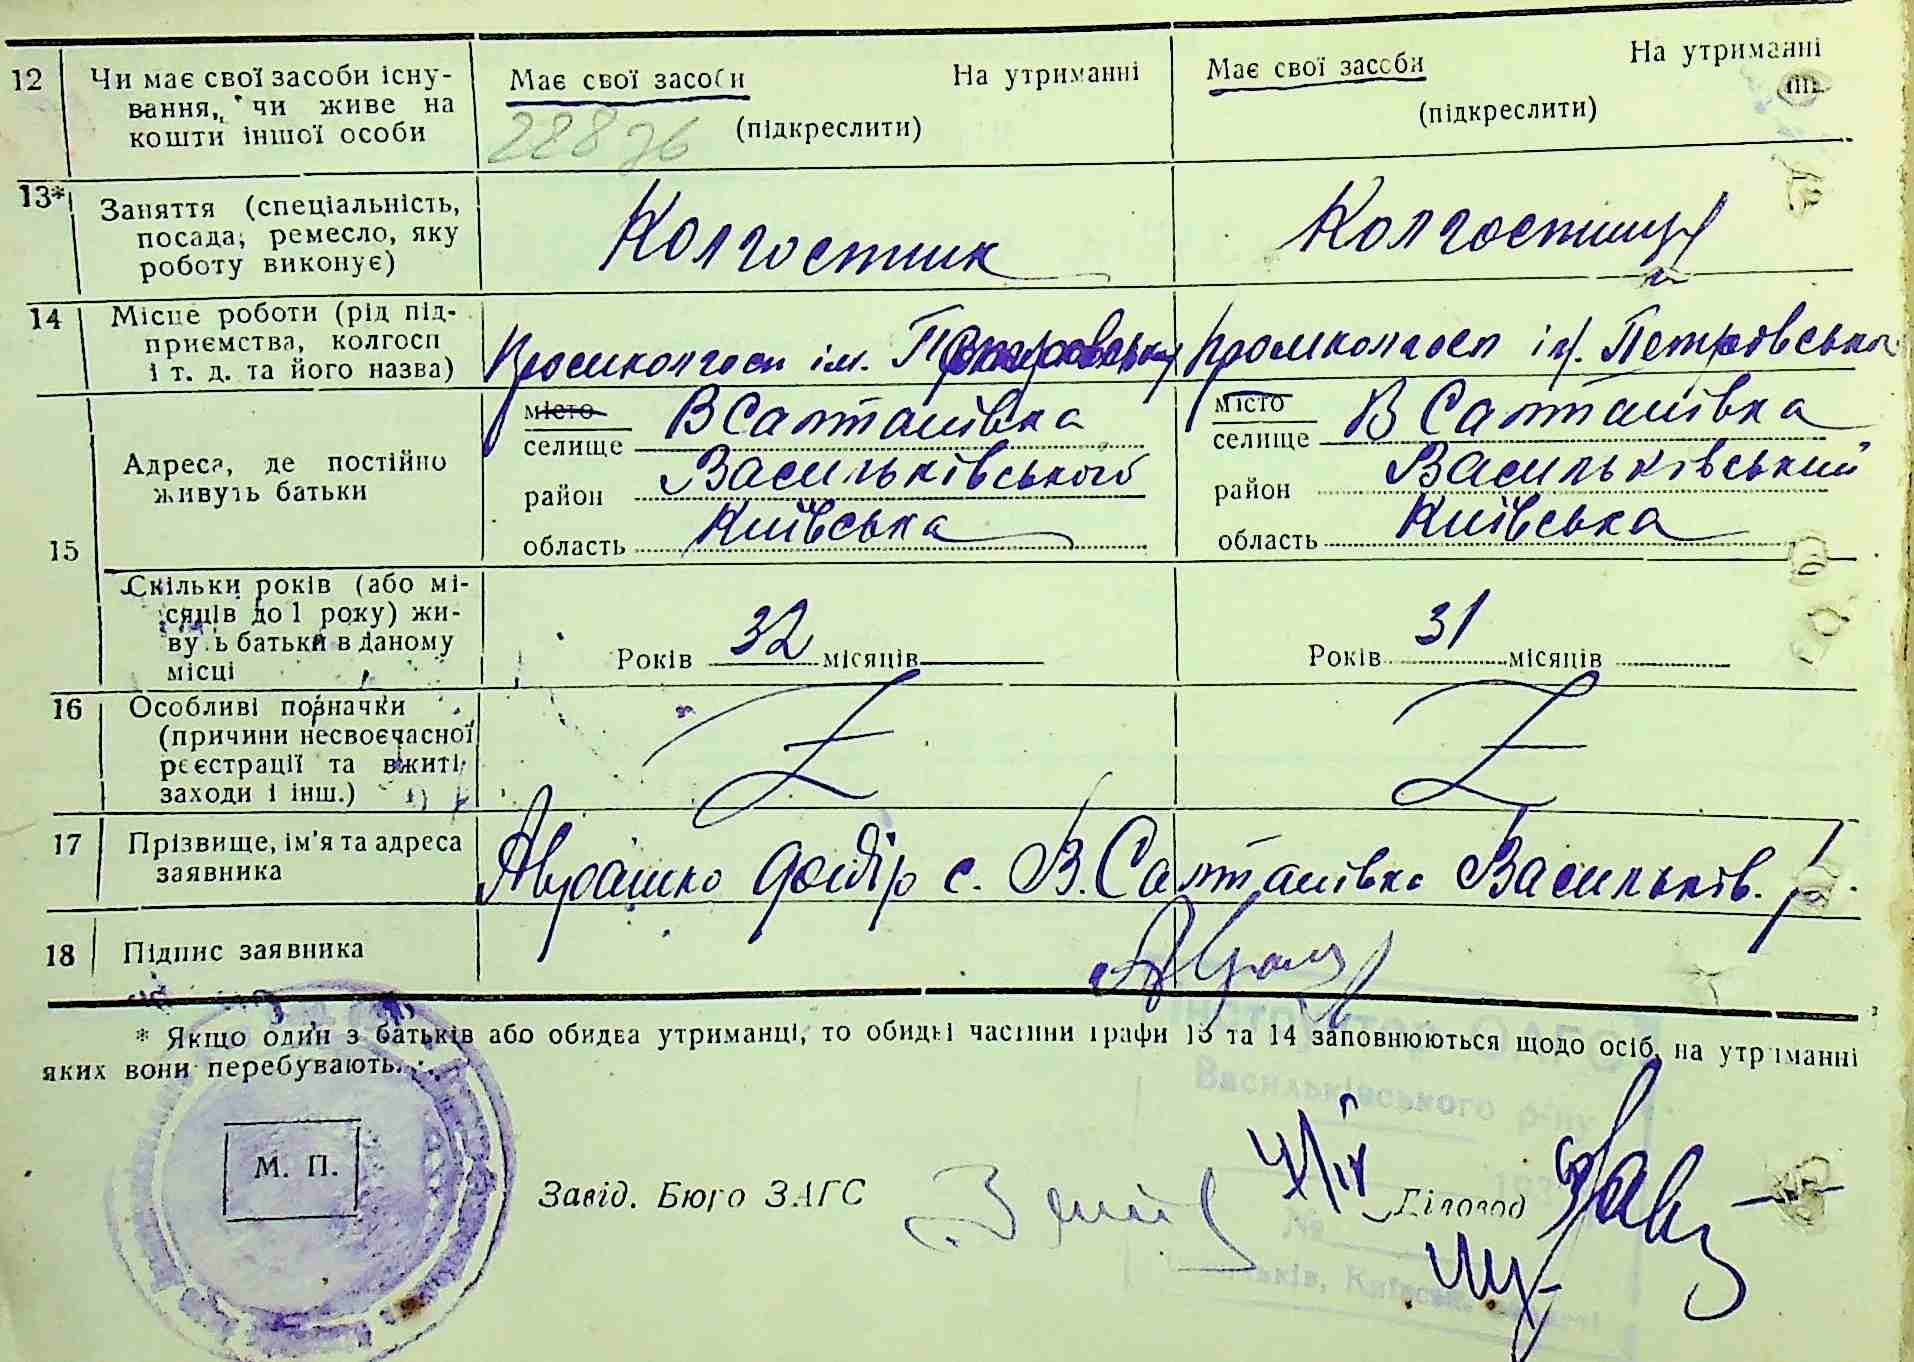 12 Чи має свої засоби існу-
вання, чи живе на
кошти іншої особи
Має свої засоби На утриманні
(підкреслити)
22876
Має свої засоби На утриманні
(підкреслити)
13* Заняття (спеціальність,
посада, ремесло, яку
роботу виконує)
Колгостник
Колгостниця
14 Місце роботи (рід під-
приємства, колгосп
і т. д. та його назва)
Промколгосп ім. Петровська
Промколгосп ім. Петровська
15 Адреса, де постійно
живуть батьки
місто
селище В Салтанівка
район Васильківського
область Київська
місто
селище В Салтанівка
район Васильківський
область Київська
Скільки років (або мі-
сяців до 1 року) жи-
вуть батьки в даному
місці
Років 32 місяців
Років 31 місяців
16 Особливі позначки
(причини несвоєчасної
реєстрації та вжиті
заходи і інш.)
17 Прізвище, ім'я та адреса
заявника
Аврашко с. В. Салтанівка Васильків. р.
18 Підпис заявника
* Якщо один з батьків або обидва утриманці, то обидві частини графи 13 та 14 заповнюються щодо осіб, на утриманні
яких вони перебувають.
Інспектор ОАГС
Васильківського р-ну
М. П.
Завід. Бюро ЗАГС
4/IV
Діловод
№